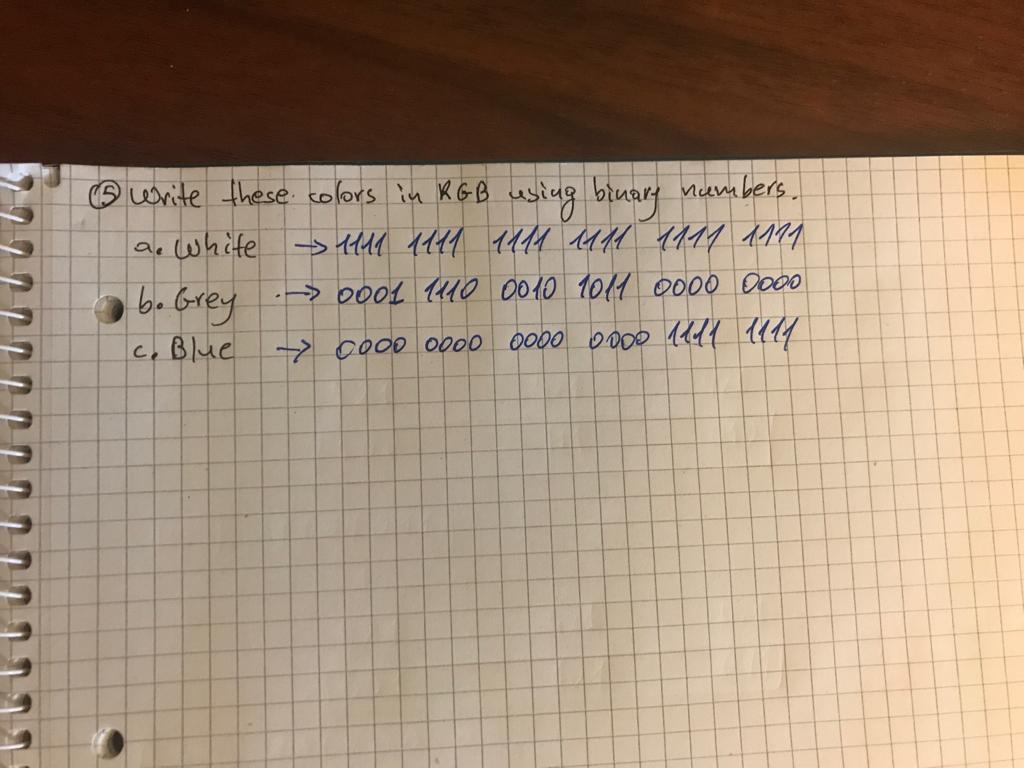 ⑤ Write these colors in RGB using binary numbers.
a. White → 1111 1111 1111 1111 1111 1111
b. Grey → 0001 1110 0010 1011 0000 0000
c. Blue → 0000 0000 0000 0000 1111 1111